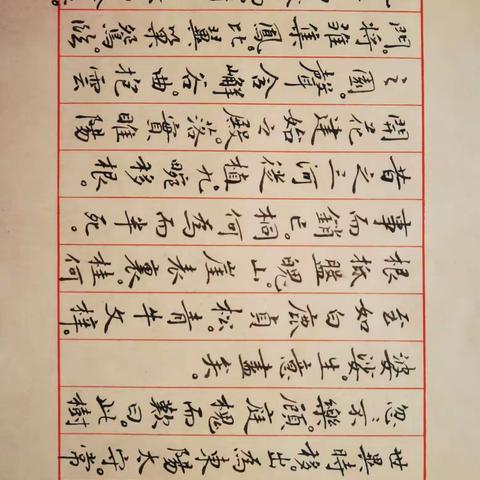 世異時移。出為東陽太守。常
忽忽不樂。顧庭槐而歎曰。此樹
婆娑。生意盡矣。
至如白鹿貞松。青牛文梓。
根柢盤魄。山崖表裏。桂何
事而銷亡。桐何為而半死。
昔之三河徙植。九畹移根。
開花建始之殿。落實睢陽
之園。聲含嶰谷。曲抱雲
門。將雛集鳳。比翼巢鴛。臨